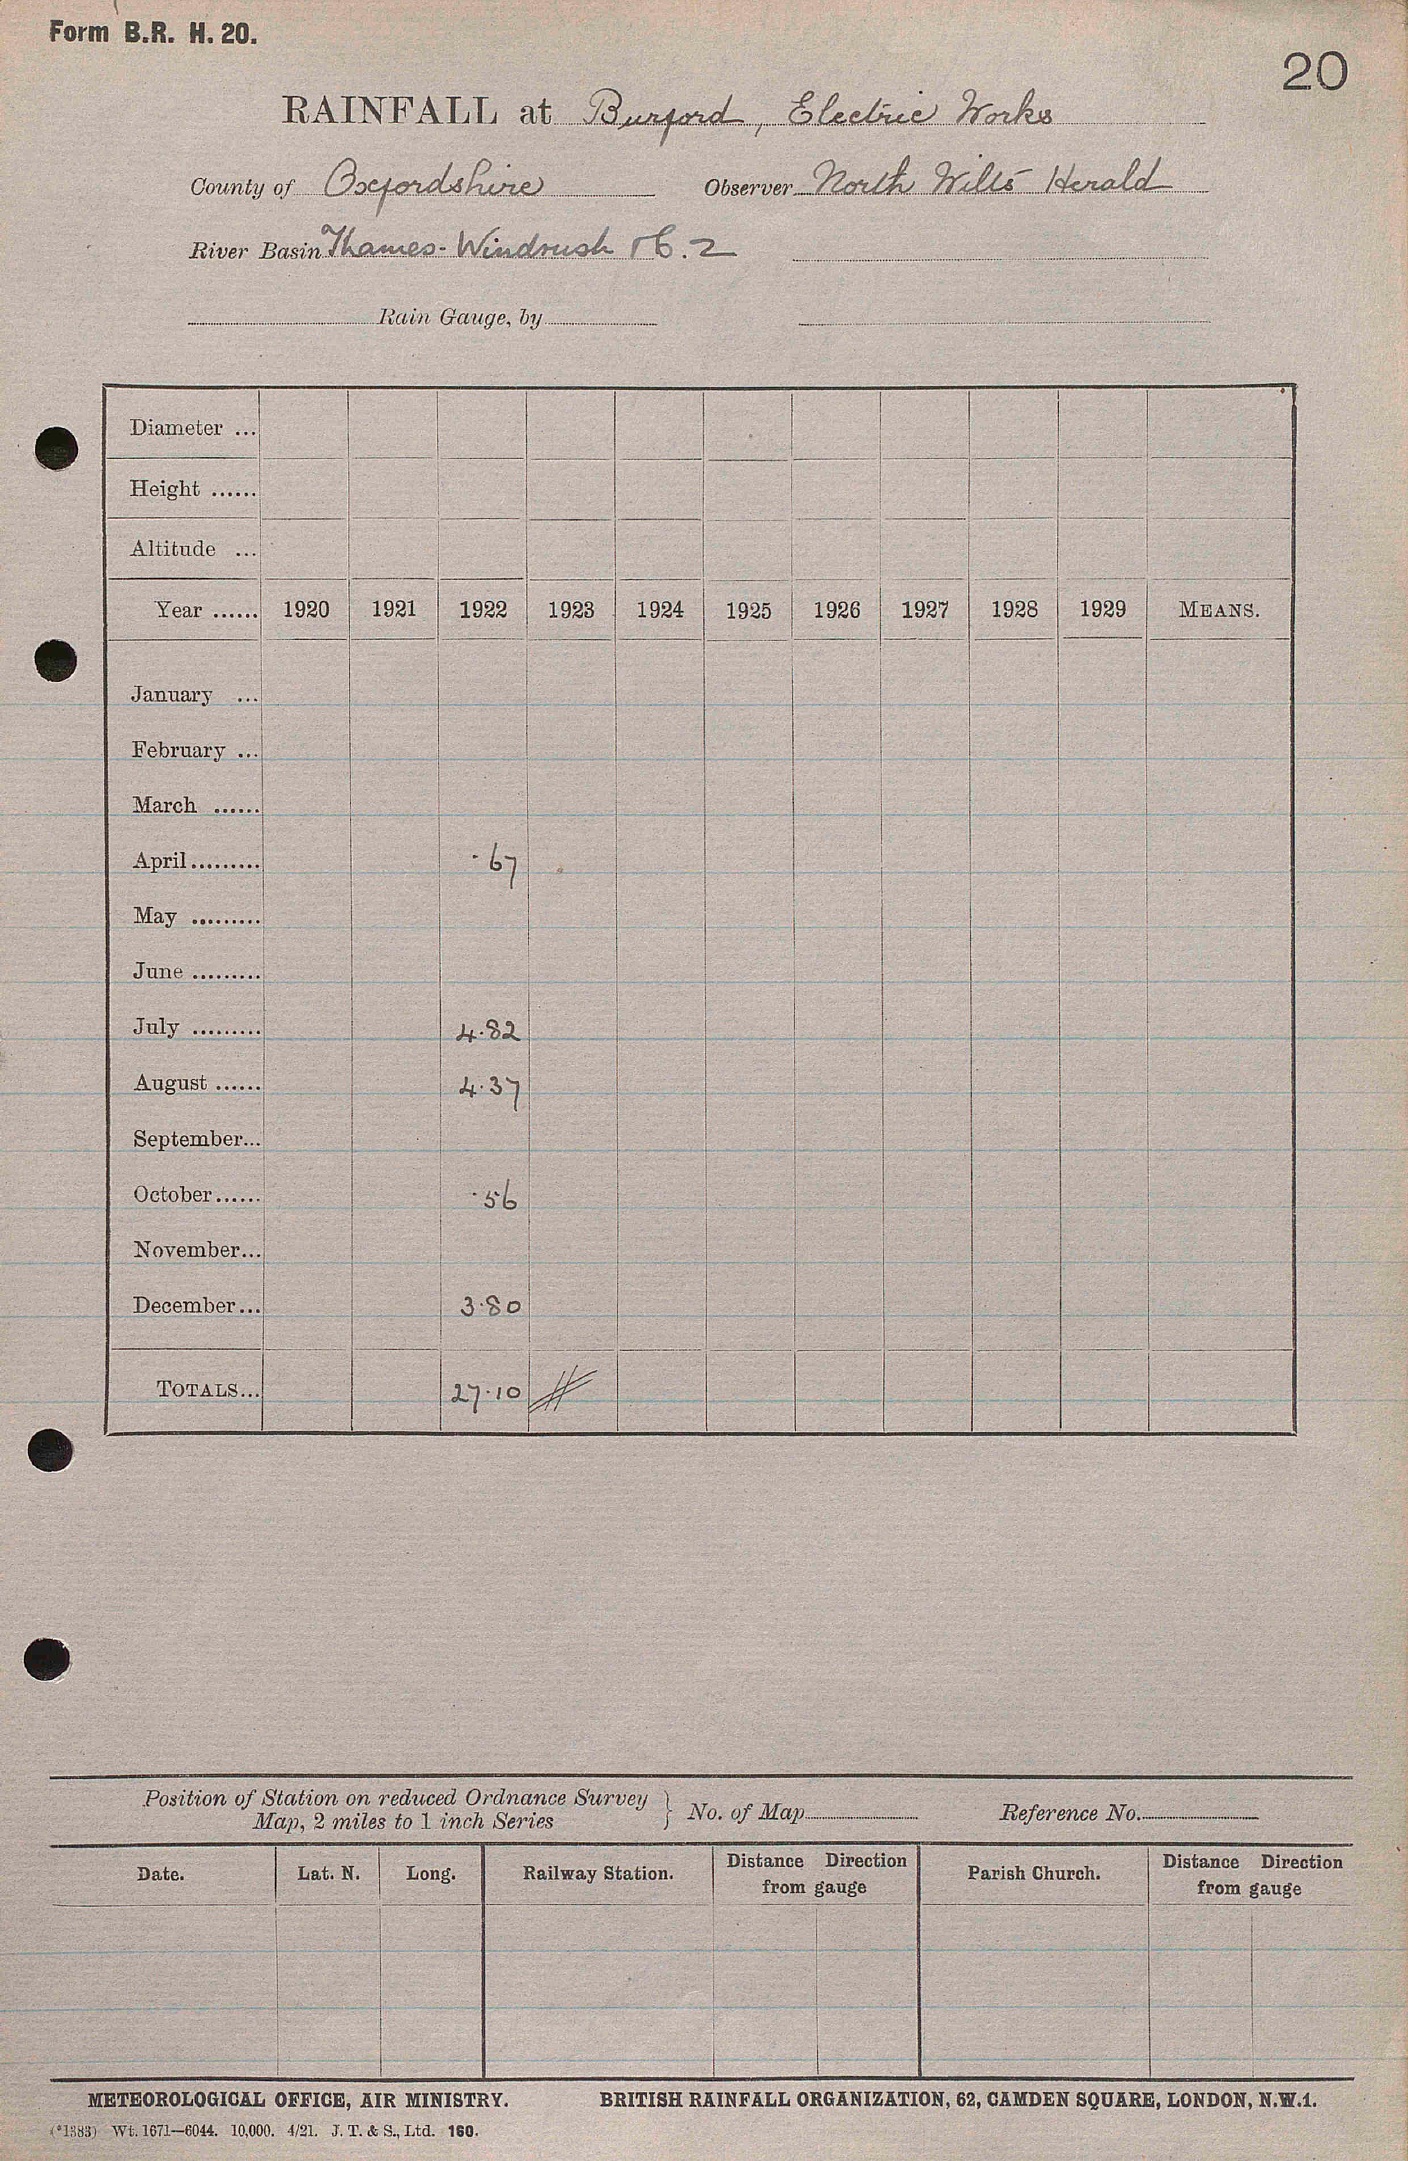 Form B.R. H. 20.
20
RAINFALL at Burford, Electric Works
County of Oxfordshire Observer North Wilts Herald
River Basin Thames - Windrush
Rain Gauge, by
Diameter ...
Height ......
Altitude ...
Year ...... 1920 1921 1922 1923 1924 1925 1926 1927 1928 1929 MEANS.
January ...
February ...
March ......
April......... ·67
May .........
June .........
July ......... 4·82
August ...... 4·37
September...
October...... ·56
November...
December... 3·80
TOTALS... 27·10
Position of Station on reduced Ordnance Survey
Map, 2 miles to 1 inch Series } No. of Map Reference No.
Date. Lat. N. Long. Railway Station. Distance Direction from gauge Parish Church. Distance Direction from gauge
METEOROLOGICAL OFFICE, AIR MINISTRY. BRITISH RAINFALL ORGANIZATION, 62, CAMDEN SQUARE, LONDON, N.W.1.
(*1383) Wt. 1671—6044. 10,000. 4/21. J. T. & S., Ltd. 160.